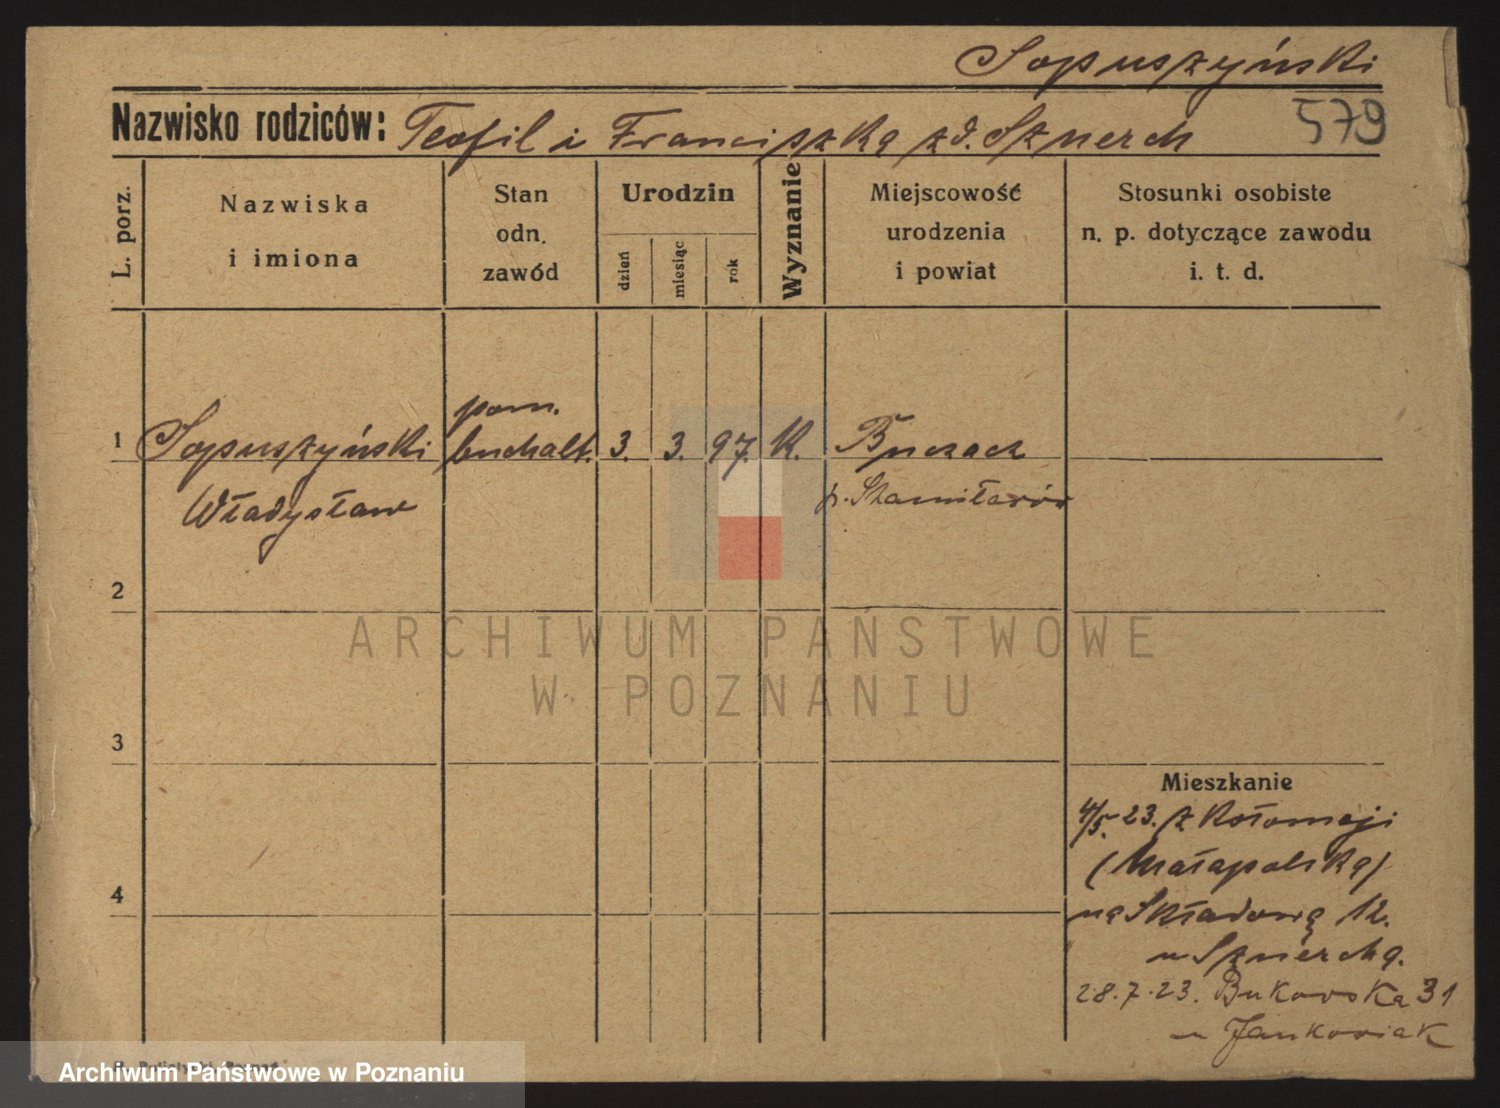 Sopuszyński
Nazwisko rodziców: Teofil i Franciszka zd. Sznerch
579
L. porz.
Nazwiska
i imiona
Stan
odn.
zawód
Urodzin
dzień
miesiąc
rok
Wyznanie
Miejscowość
urodzenia
i powiat
Stosunki osobiste
n. p. dotyczące zawodu
i. t. d.
pom.
1 Sopuszyński buchalt. 3. 3. 97. K. Buczacz
Władysław p.
2
ARCHIWUM PAŃSTWOWE
W POZNANIU
3
Mieszkanie
4/5. 23. z Kołomeji
(Małapolska)
4
na Składową 12.
u Sznercha.
28.7.23. Bukowska 31
u Jankowiak
Archiwum Państwowe w Poznaniu